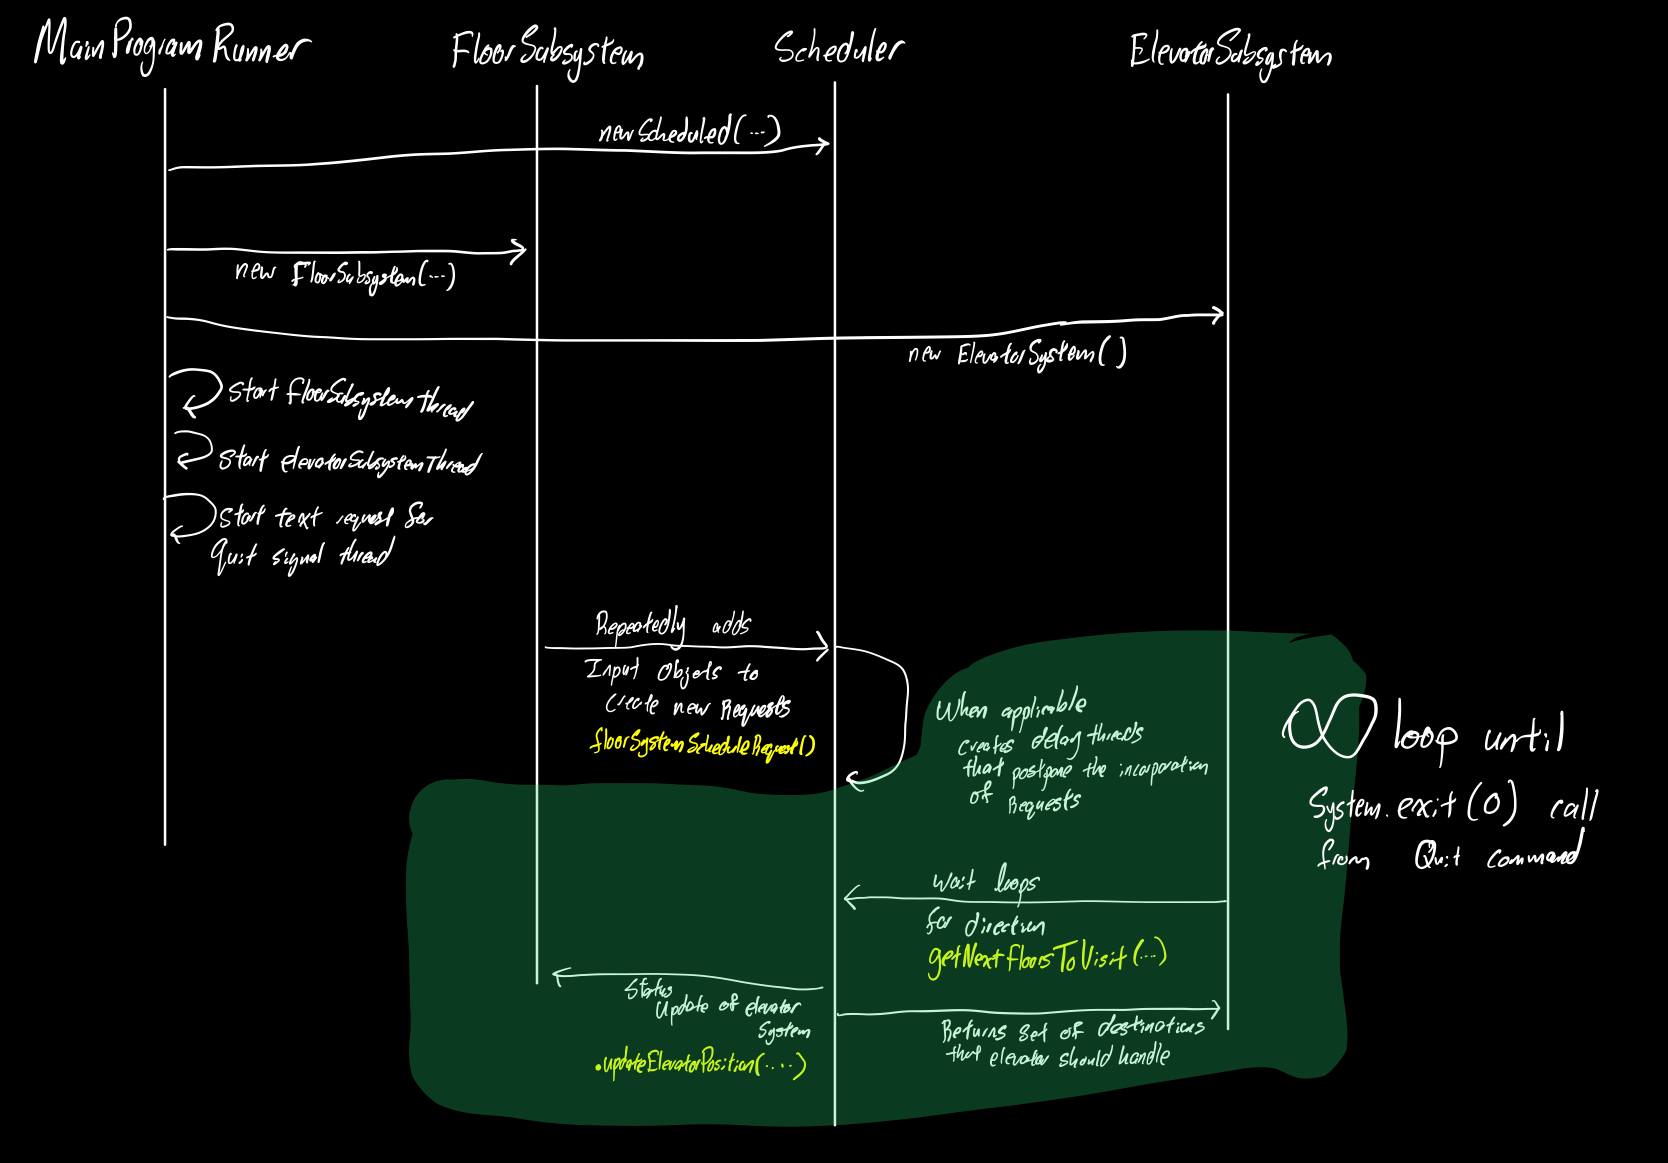 MainProgramRunner
FloorSubsystem
Scheduler
ElevatorSubsystem
new Scheduled(...)
new FloorSubsystem(...)
new ElevatorSystem()
Start floorSubsystemThread
Start elevatorSubsystemThread
Start text request for
Quit signal thread
Repeatedly adds
Input Objets to
Create new Requests
floorSystemScheduleRequest()
When applicable
creates delay threads
that postpone the incorporation
of Requests
∞ loop until
System.exit(0) call
from Quit command
Wait loops
for direction
getNextFloorsToVisit(...)
Status
Update of elevator
System
.updateElevatorPosition(....)
Returns set of destinations
that elevator should handle